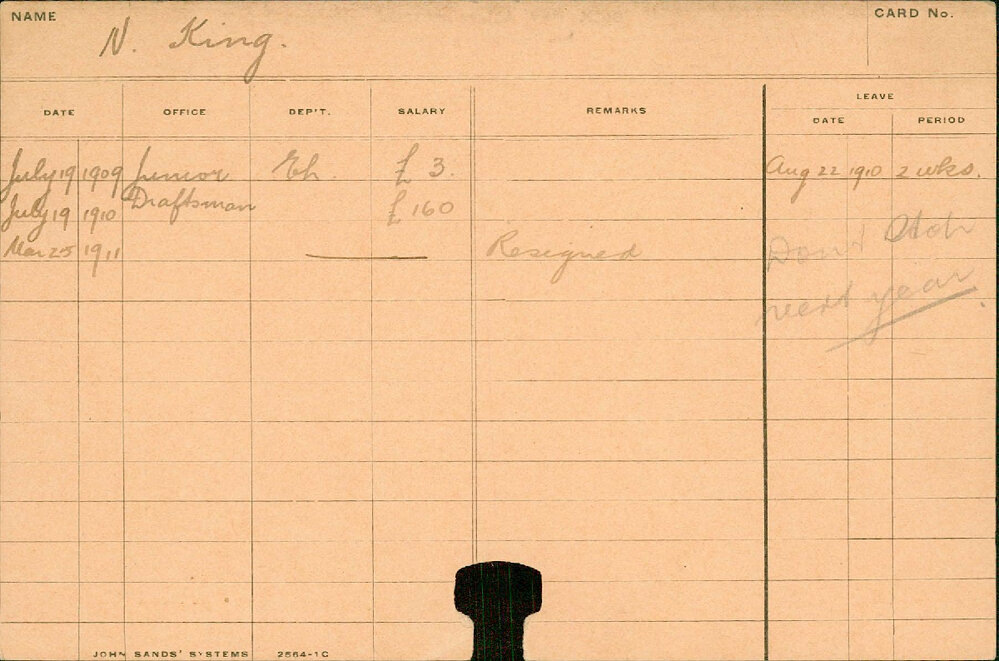 NAME N. King. CARD No.
LEAVE
DATE OFFICE DEP'T. SALARY REMARKS DATE PERIOD
July 19 1909 Junior £ 3. Aug 22 1910 2 wks.
July 19 1910 Draftsman £ 160
Mar 25 1911 Resigned Don't
next year.
JOHN SANDS' SYSTEMS 2564-1C